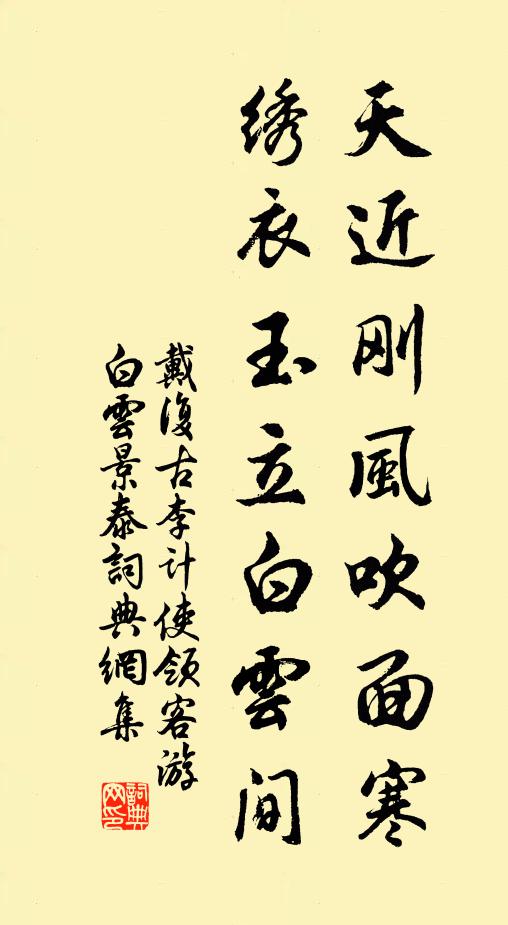 天近刚風吹面寒
绣衣玉立白雲间
戴復古李计使领客游
白雲景泰詞典網集
詞典
网印